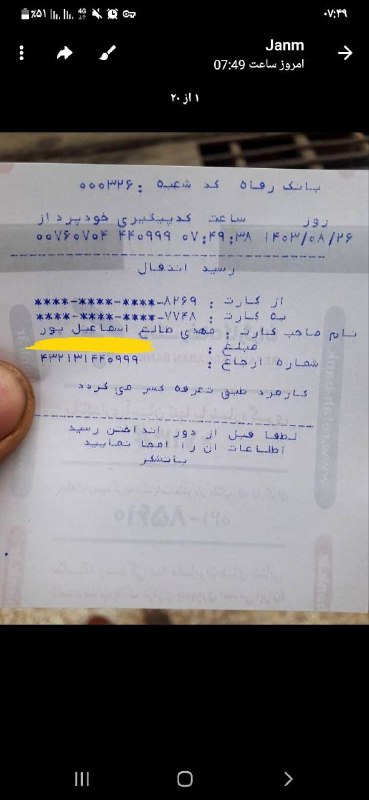 ٪۵۱ 4G ۰۷:۴۹
Janm
امروز ساعت 07:49
۱ از ۲۰
بانک رفاه کد شعبه : ۰۰۰۳۲۶
روز ساعت کدپیگیری خودپرداز
۱۴۰۳/۰۸/۲۶ ۰۷:۴۹:۳۸ ۴۴۰۹۹۹ ۰۰۷۶۰۷۰۴
رسید انتقال
از کارت : ۸۲۶۹-****-****-****
به کارت : ۷۷۴۸-****-****-****
نام صاحب کارت : مهدی طالع اسماعیل پور
مبلغ :
شماره ارجاع : ۴۳۲۱۳۱۴۴۰۹۹۹
کارمزد طبق تعرفه کسر می گردد
لطفا قبل از دور انداختن رسید
اطلاعات آن را امحا نمایید
باتشکر
۰۲۱-۸۵۶۱۰